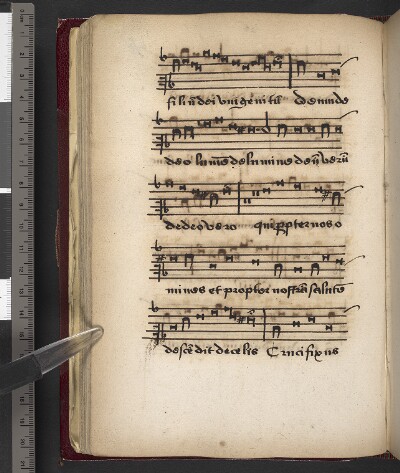 filiu dei unigenitu deum de
deo lumē de lumine deū verū
de deo vero qui ꝓpter nos o
mines et propter nostrā salute
descēdit de celis Crucifixus